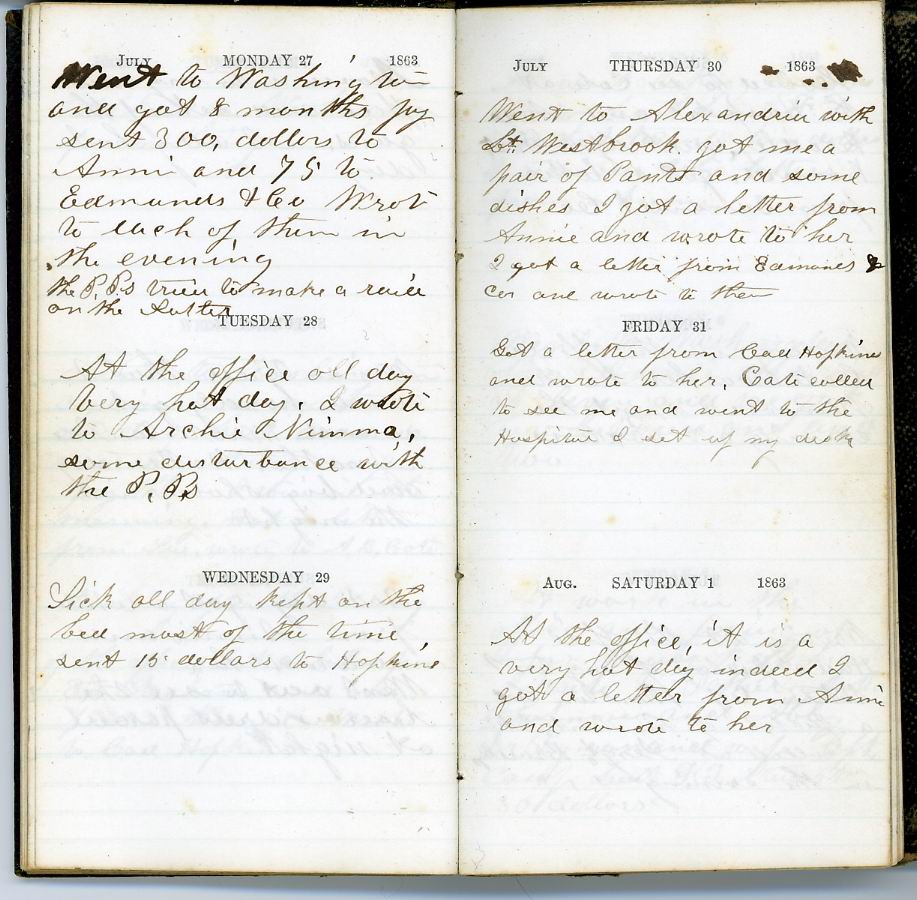 July MONDAY 27 1863
Went to Washington
and got 8 months pay
sent 300, dollars to
Anni and 75 to
Edmunds & Co Wrot
to each of them in
the evening
the P.P.s tried to make a raid
on the Sutter
TUESDAY 28
At the office all day
Very hot day. I wrote
to Archie Nimma,
some disturbance with
the P. Ps
WEDNESDAY 29
Sick all day kept on the
bed most of the time
sent 15 dollars to Hopkins
July THURSDAY 30 1863
Went to Alexandria with
Lt. Westbrook. got me a
pair of Pants and some
dishes I got a letter from
Annie and wrote to her
I got a letter from Edmunds &
Co and wrote to them
FRIDAY 31
Got a letter from Hopkins
and wrote to her, Cate called
to see me and went to the
Hospital I set up my desk
Aug. SATURDAY 1 1863
At the office, it is a
very hot day indeed I
got a letter from Anni
and wrote to her